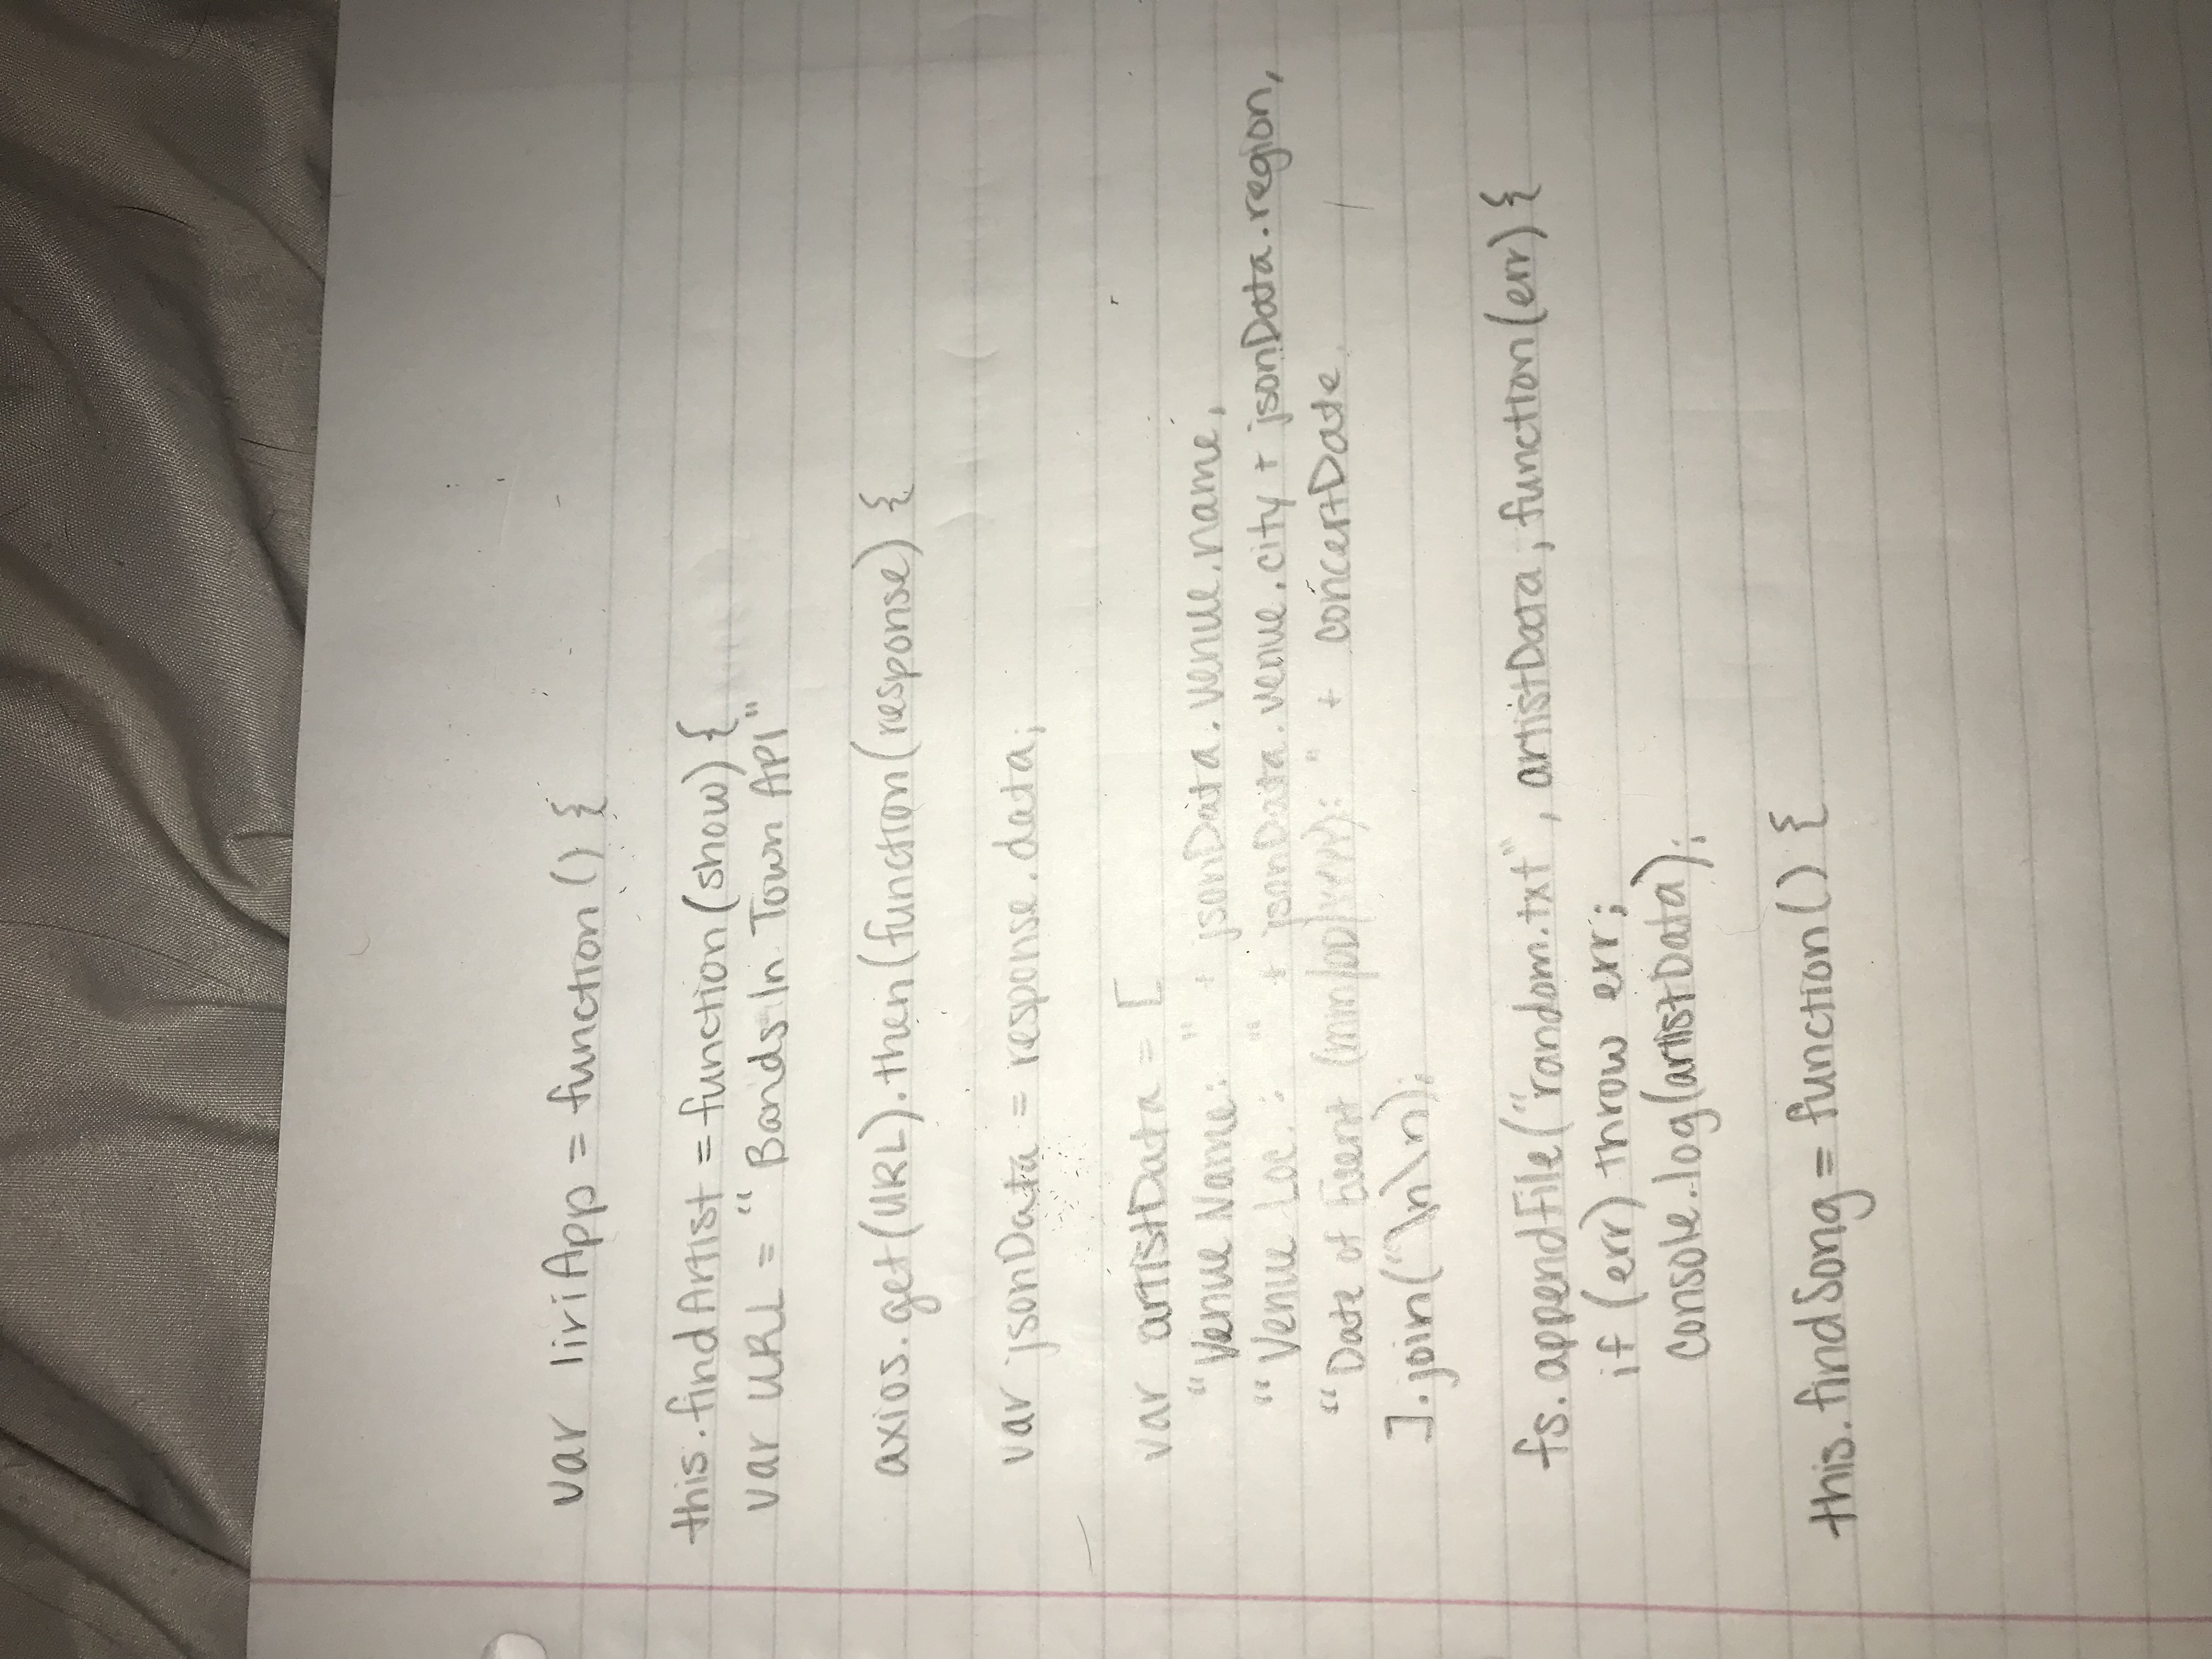 var liriApp = function () {
this.findArtist = function (show) {
var URL = "Bands In Town API"
axios.get(URL).then(function(response) {
var jsonData = response.data;
var artistData = [
"Venue Name: " + jsonData.venue.name,
"Venue Loc. : " + jsonData.venue.city + jsonData.region,
"Date of Event (mm/DD/YYYY): " + concertDate
].join("\n\n);
fs.appendFile("random.txt", artistData, function(err) {
if (err) throw err;
console.log(artistData);
this.findSong = function() {